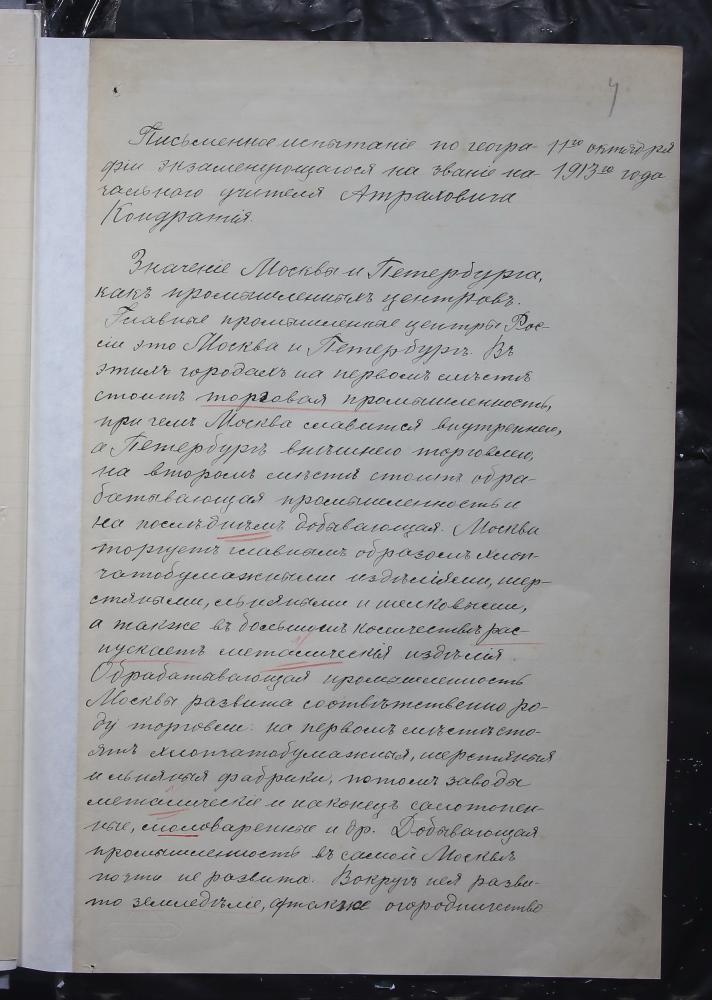 4
Письменное испытаніе по геогра-
фіи экзаменующагося на званіе на-
чальнаго учителя Атраховича
Кондратія.
11го октября
1913го года
Значеніе Москвы и Петербурга,
какъ промышленныхъ центровъ.
Главные промышленные центры Рос-
сіи это Москва и Петербургъ. Въ
этихъ городахъ на первомъ мѣстѣ
стоитъ торговая промышленность,
при чемъ Москва славится внутреннею,
а Петербургъ внѣшнею торговлею,
на второмъ мѣстѣ стоитъ обра-
батывающая промышленность и
на послѣднѣмъ добывающая. Москва
торгуетъ главнымъ образомъ хлоп-
чатобумажными издѣліями, шер-
стяными, льняными и шелковыми,
а также въ большомъ количествѣ рас-
пускаетъ металическія издѣлія.
Обрабатывающая промышленность
Москвы развита соотвѣтственно ро-
ду торговли: на первомъ мѣстѣ сто-
ятъ хлопчатобумажныя, шерстяныя
и льняныя фабрики, потомъ заводы
металическіе и наконецъ салотопен-
ные, моловаренные и др. Добывающая
промышленность въ самой Москвѣ
почти не развита. Вокругъ нея разви-
то земледѣліе, а также огородничество